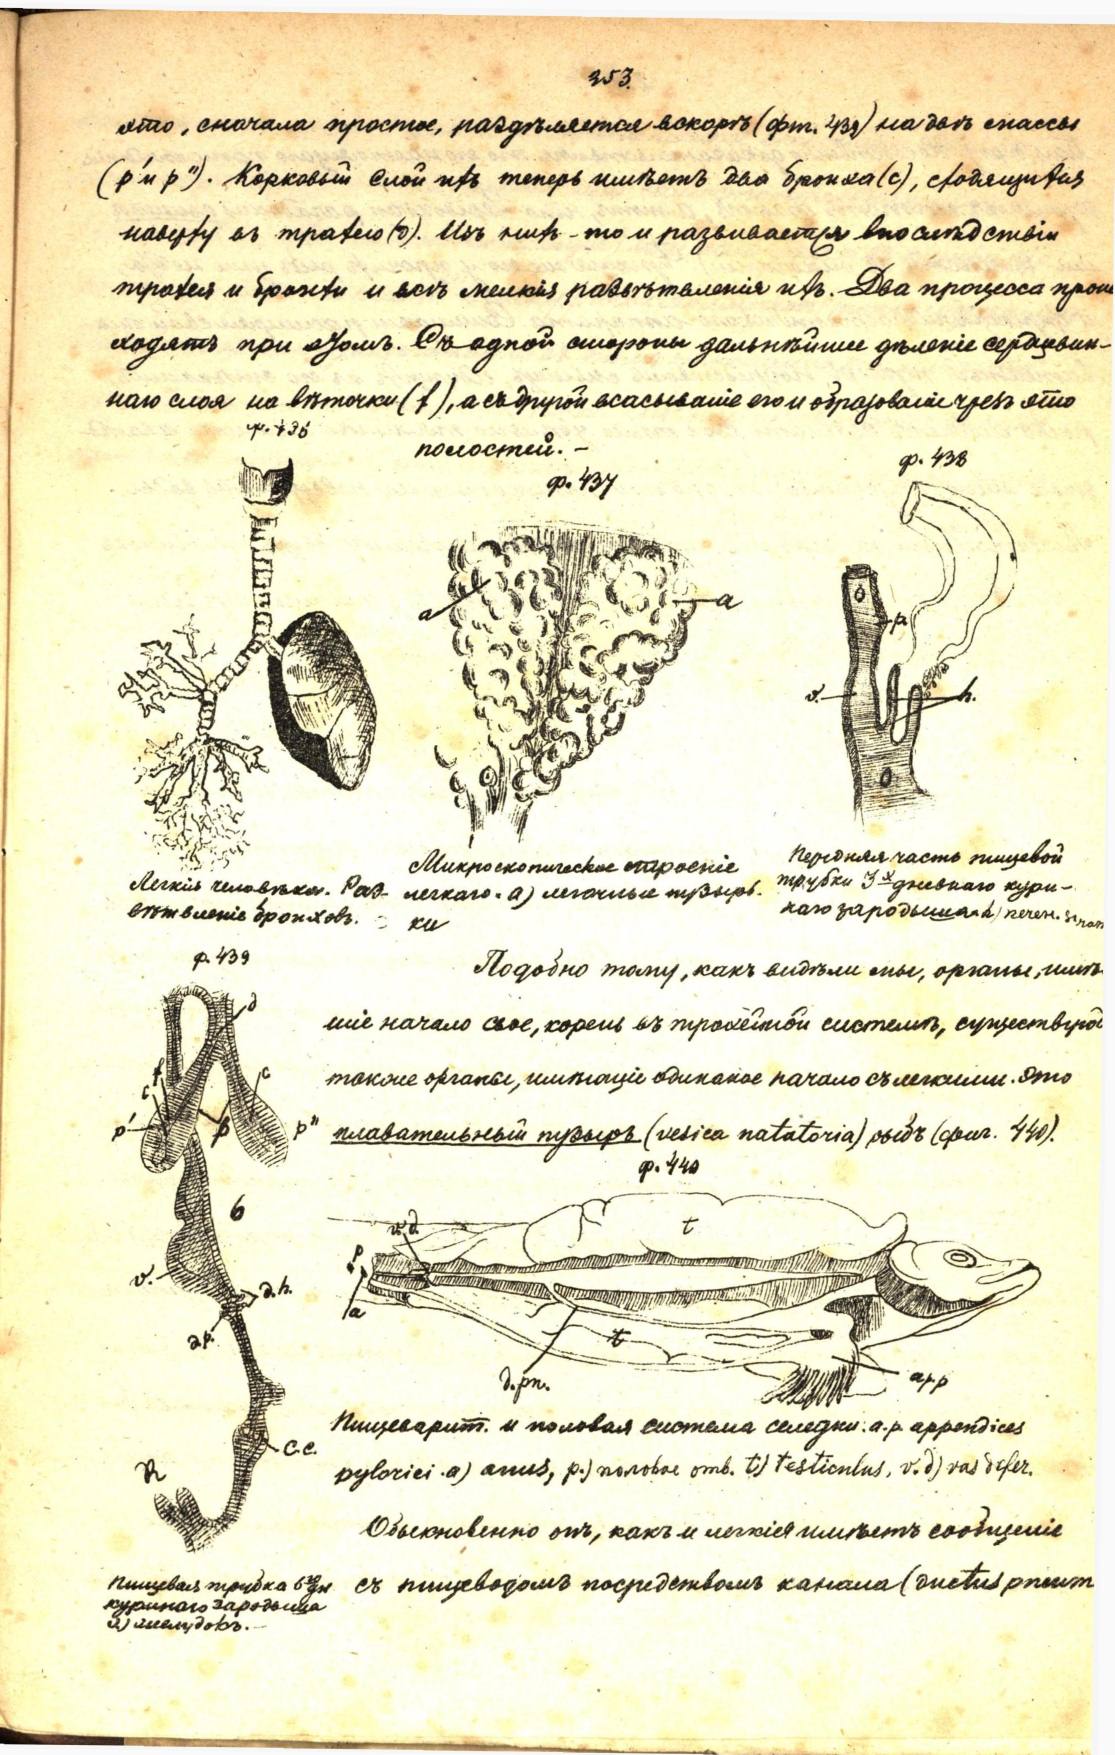 353.
это, сначала простое, раздѣляется вскорѣ (фиг. 439) на двѣ массы
(p' и p"). Корковый слой ихъ теперь имѣетъ два бронха (c), сходящихся
наверху въ трахею (d). Изъ нихъ-то и развивается впослѣдствіи
трахея и бронхи и всѣ мелкія развѣтвленія ихъ. Два процесса проис
ходятъ при этомъ. Съ одной стороны дальнѣйшее дѣленіе сердцевин-
наго слоя на вѣточки (f), а съ другой всасываніе его и образованіе чрезъ это
полостей. –
ф. 437
ф. 438
a
a
p.
v.
h.
Легкія человѣка. Раз-
вѣтвленіе бронховъ.
Микроскопическое строеніе
легкаго. a) легочные пузырь-
ки
Передняя часть пищевой
трубки 3х дневнаго кури-
наго зародыша h) печен.
ф. 439
d
f
c
c
p'
p
p"
б
v.
d.h.
d.p.
c.c.
R
Пищевая трубка 6ти дн
куринаго зародыша
v) желудокъ. –
Подобно тому, какъ видѣли мы, органы, имѣ
шіе начало свое, корень въ трахейной системѣ, существую
также органы, имѣющіе одинакое начало съ легкими. Это
плавательный пузырь (vesica natatoria) рыбъ (фиг. 440).
ф. 440
v.d.
t
p
a
t
d.pn.
a.p.p
Пищеварит. и половая система селедки. a.p. appendices
pylorici. a) anus, p.) половое отв. t) testiculus, v.d) vas defer.
Обыкновенно онъ, какъ и легкія имѣетъ сообщеніе
съ пищеводомъ посредствомъ канала (ductus pneum